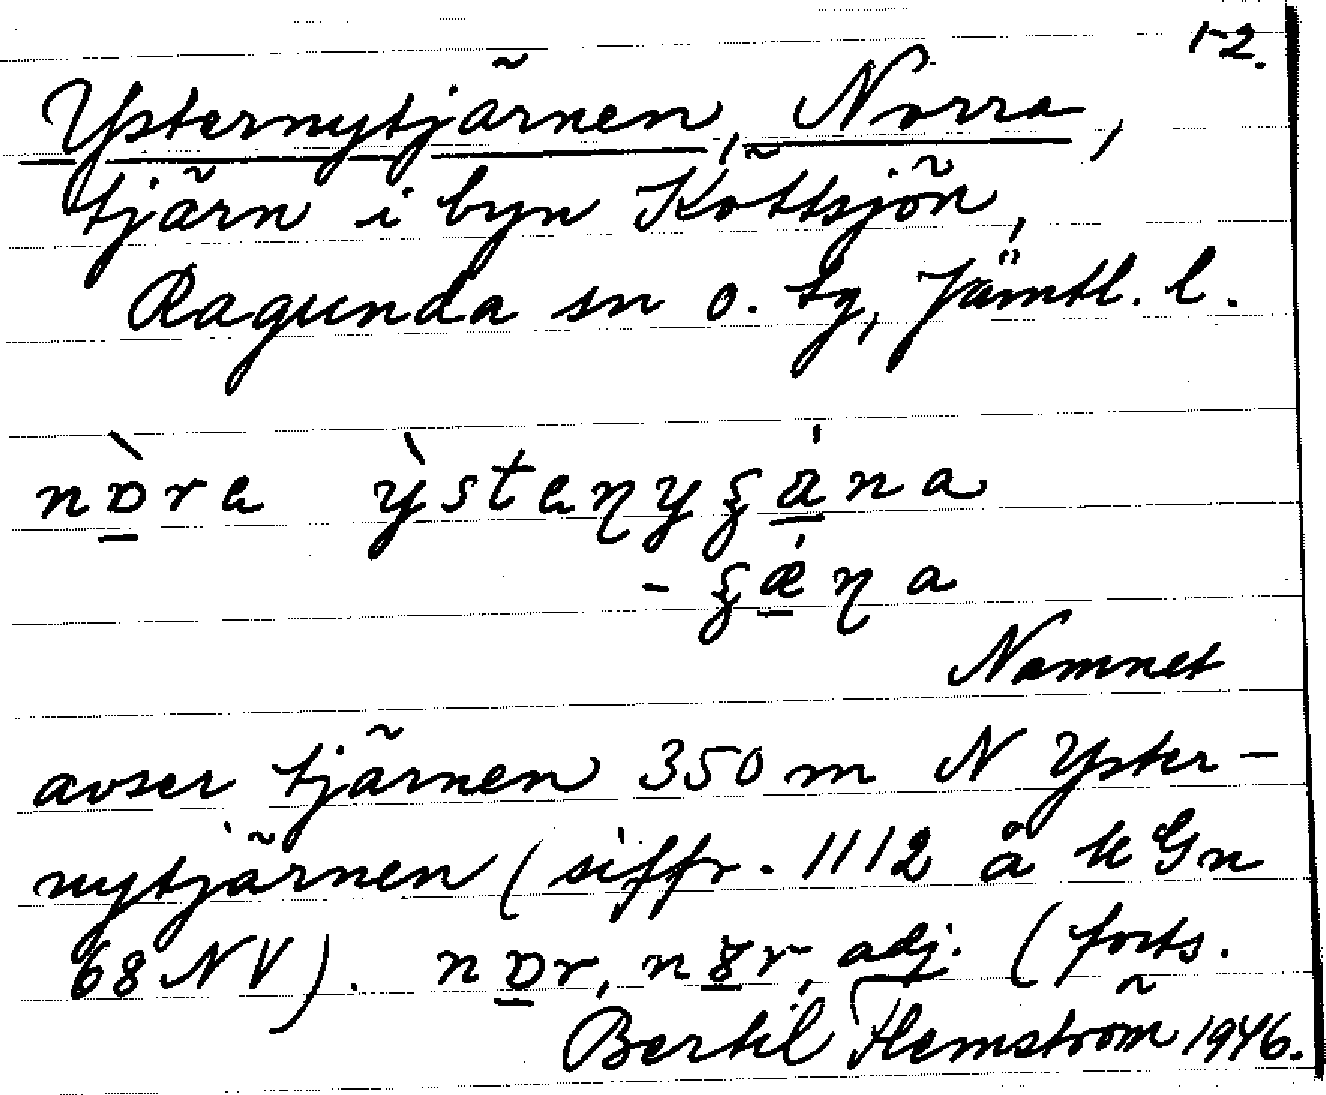 1-2.
Ysternytjärnen, Norra,
tjärn i byn Köttsjön,
Ragunda sn o. tg, Jämtl. l.
Namnet
avser tjärnen 350 m N Yster-
nytjärnen (siffr. 1112 å kGn
68 NV). adj. (forts.
Bertil Flemström 1946.